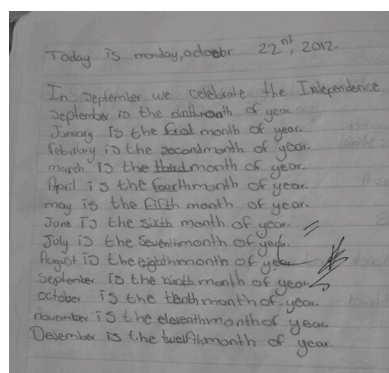 Today is monday, octobr 22nt, 2012.
In september we celebrate the Independence
september is the ninthmonth of year.
January Is the first month of year.
February is the secondmonth of year.
march Is the third month of year.
April is the fourthmonth of year.
may is the Fifth month of year.
June Is the sixth month of year.
July is the Seventhmonth of year.
August is the eighthmonth of year
september is the ninth month of year
october is the tenth month of year.
november is the eleventhmonth of year.
Desember is the twelfthmonth of year.